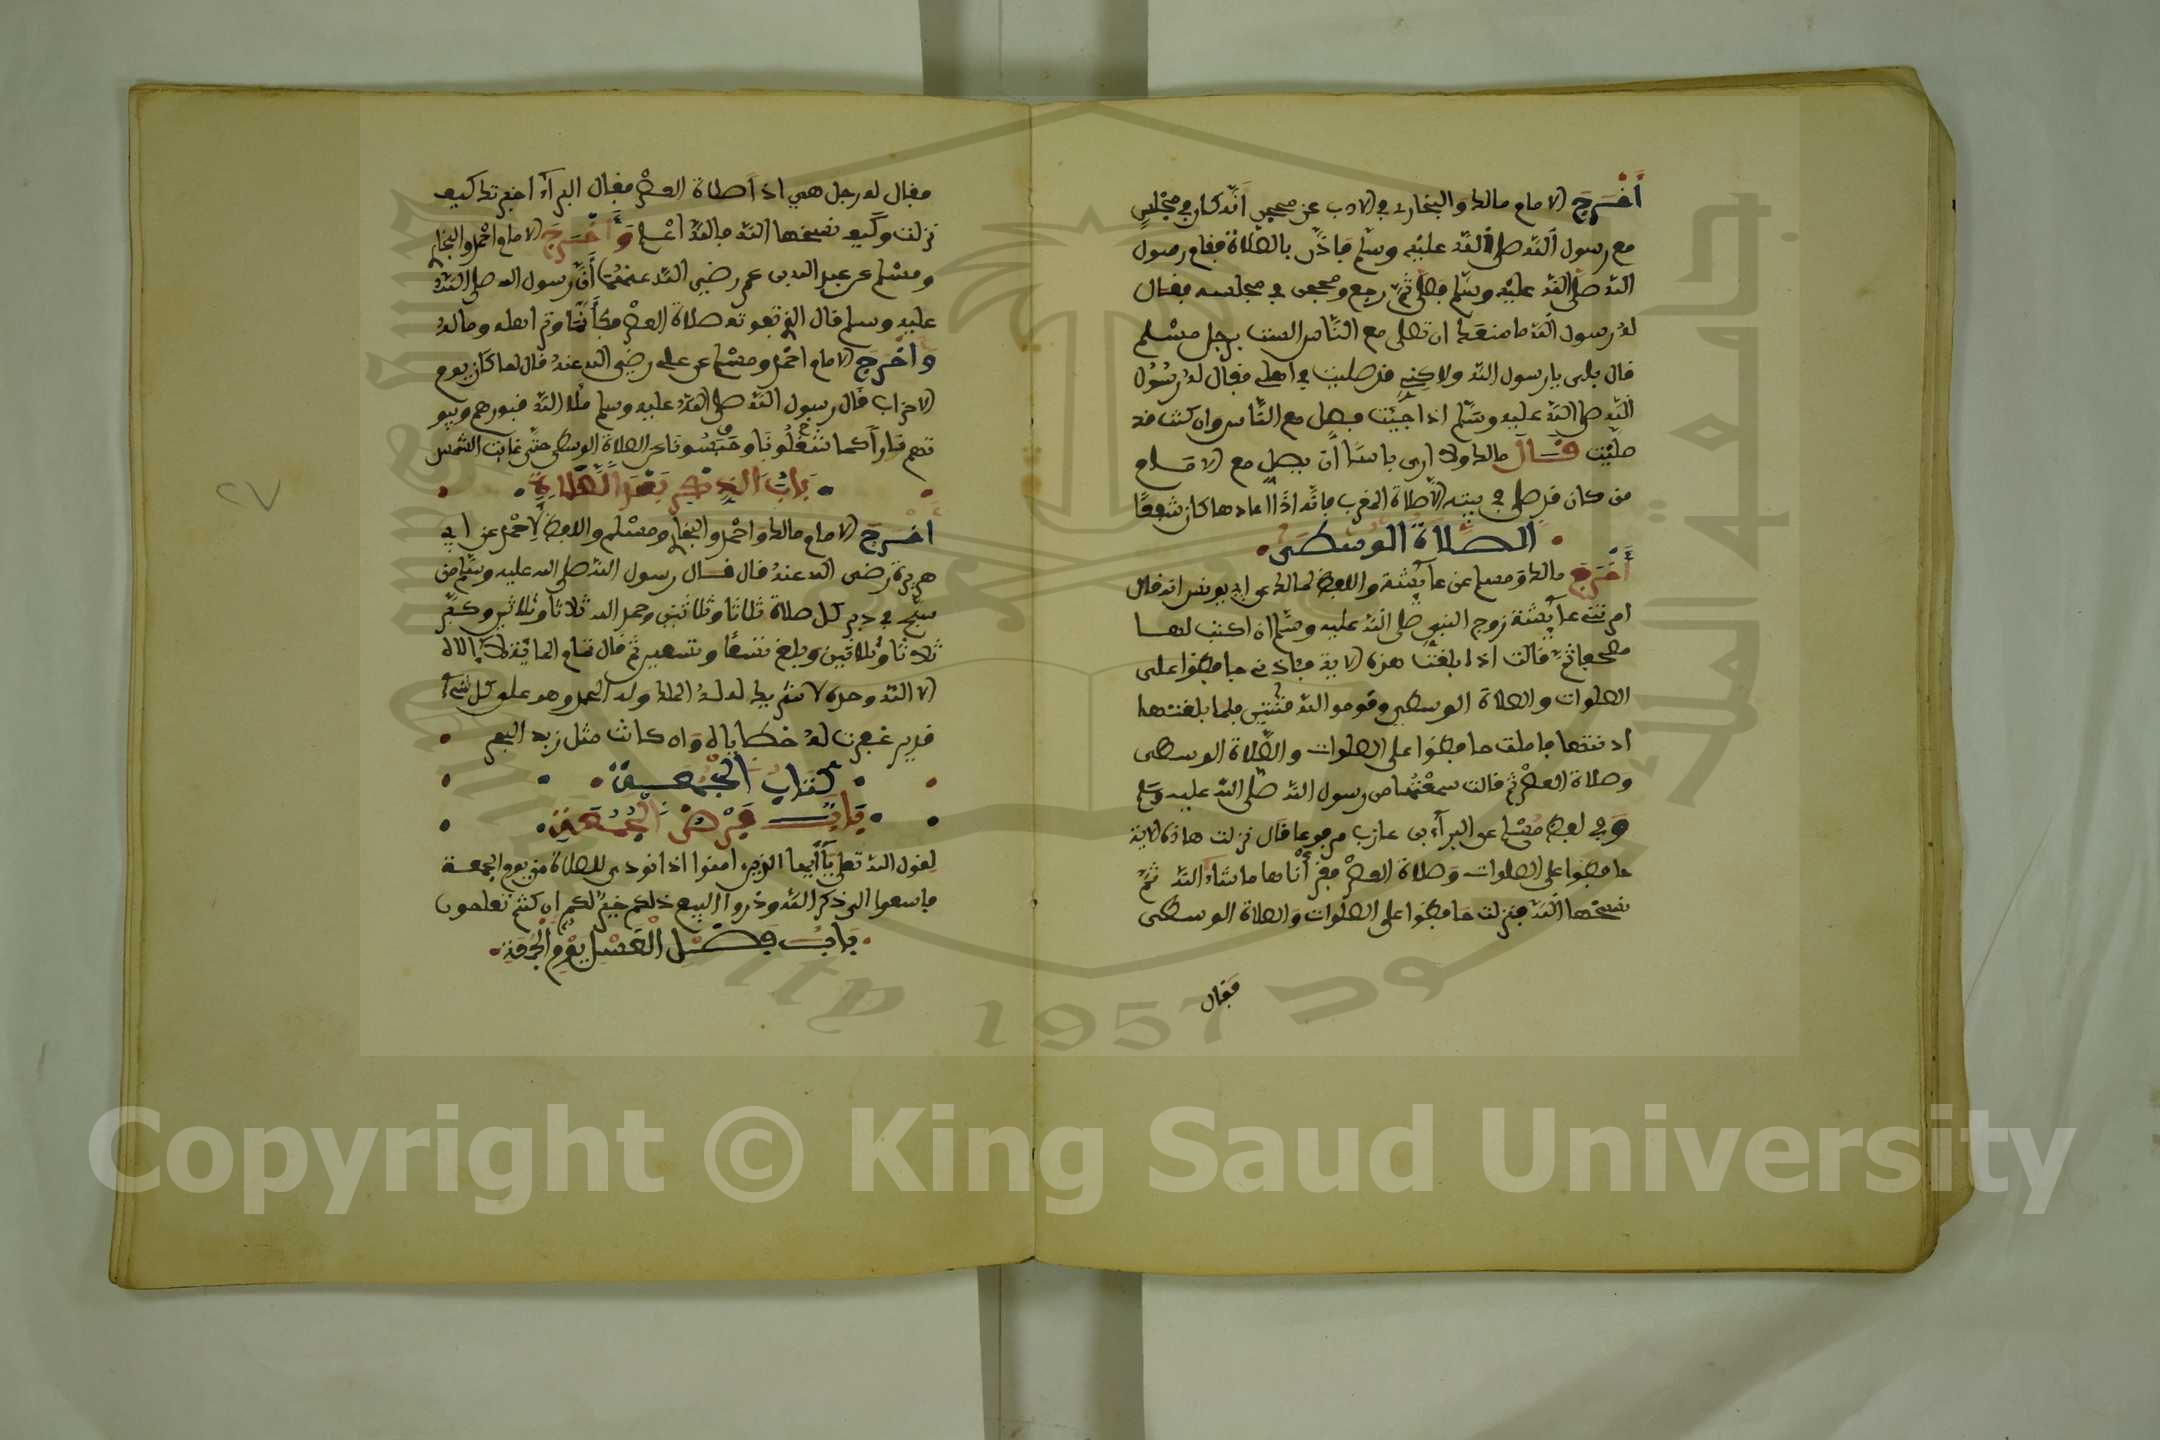 أَخْرَجَ الامام مالك والبخاري في الادب عن محجن انّه كان في مجْلس
مع رسول الله صلى الله عليْه وسلّم فاذّن بالصّلاة فقام رسول
الله صلى الله عليْه وسلّم فصلى ثمّ رجع ومحجن في مجلسه فقال
لهُ رسول الله ما منعك ان تصلى مع النّاس الست برجل مسْلم
قال بلى يا رسول الله ولاكنِي قد صليت في اهلي فقال لهُ رسُوْل
الله صلى الله عليه وسَلّم اذا جيْت فصل مع النّاس وان كنت قد
صلّيْت قَــالَ مالك ولا ارى باسًا أن يصل مع الامــام
من كان قد صلى في بيته الّا صلاة المغرب فانّه اذا اعادها كان شفعًا
الصلاة الوسْطى
أَخْرَجَ مالك ومسلم عن عآئشة واللفظ لمالك عن ابي يونس انه قال
امرتني عآئشة زوج النبي صلى الله عليه وسّلم ان اكتب لهــا
مصحفا ثمّ قالت اذا بلغت هذه الاية فئاذني حافظوا على
الصلوات والصلاة الوسطى وقوموا لله قنتين فلما بلغتها
اذنتها فاملت حافظوا على الصلوات والصّلاة الوسطى
وصلاة العصْر ثم قالت سمعْتها من رسول الله صلّى الله عليه وسلم
وَفي لفظ مُسْلم عن البرآء بن عازب مرفوعا قال نزلت هاذه الاية
حافظوا على الصلوات وَصلاة العصْر فقرأْناها ما شاء الله ثمّ
نسخها اللّه فنزلت حَافظوا على الصلوات وَالصلاة الوسطى
فقال
فقال له رجل هي اذًا صلاة العصْر فقال البرآء اخبرتك كيف
نزلت وكَيف نسخها الله فالله اعْلم وَأَخْرَجَ الامام احْمد والبخاري
ومسْلم عن عبد الله بن عمر رضي الله عنهُما أَنّ رسول الله صلى الله
عليه وسلم قال الذي تفوته صلاة العصْر فكأَنّما وتر اهله وماله
وأَخْرَجَ الامام احْمد ومسْلم عن علي رضي الله عنهُ قال لما كَان يوم
الاحزاب قال رسول الله صلى الله عليه وسلم ملأ الله قبورهم وبيو
تهم نارا كما شَغَلُونَا وحَبَسُونا عن الصلاة الوسطى حتّى غابت الشّمْس
بَابُ الذِّكْرِ بَعْدَ الصَّلَاةِ
أَخْرَجَ الامام مالك وَاحْمد والبخاري ومسْلم واللفظ لِأحْمد عن ابي
هريرة رضى الله عنهُ قال قــال رسول الله صلى الله عليه وسلّم من
سبّح في دبر كل صلاة ثلاثا وثلاثين وحمد الله ثلاثا وثلاثين وكبّر
ثلاثا وثلاثين وبلغ تسْعا وتسعين ثم قال تمام المائة لا الاه
الا الله وحده لا شريك له لهُ الملك وله الحمد وهو على كل شيْء
قدير غفرت لهُ خطاياه وَان كانت مثل زبد البحر
كتابُ الجُمُعــة
بَابُ فَرْضِ الجُمُعَةِ
لقول الله تعلى يٰٓأَيّها الذين ءامنوا اذا نودى للصلاة من يوم الجمعــة
فاسعوا الى ذكر الله وذروا البيع ذلكم خيرٌ لكم ان كنتم تعلمون
بَابُ فَضْلِ الغُسْلِ يوْم الجُمُعَةِ
٢٧
جامعة الملك سعود
1957
Copyright © King Saud University